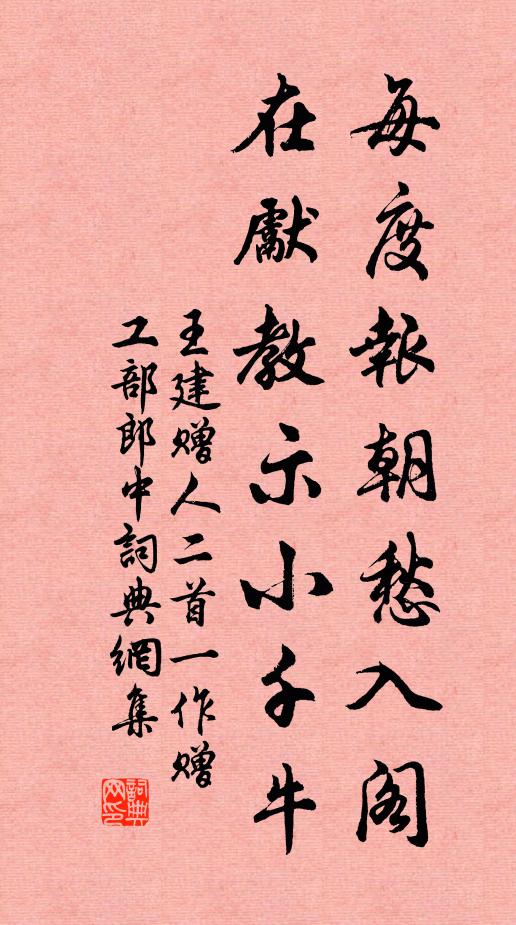 每度報朝愁入閣
在獻教示小千牛
王建赠人二首一作赠
工部郎中詞典網集
詞典网印